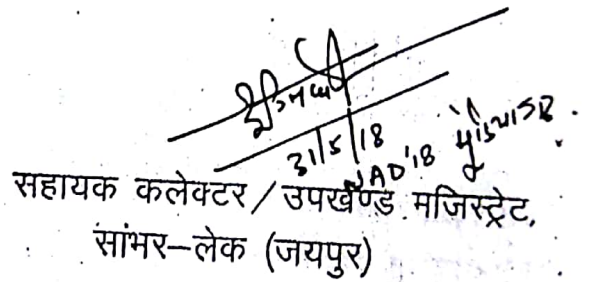 31/5/18
NAD'18
सहायक कलेक्टर / उपखण्ड मजिस्ट्रेट,
सांभर–लेक (जयपुर)